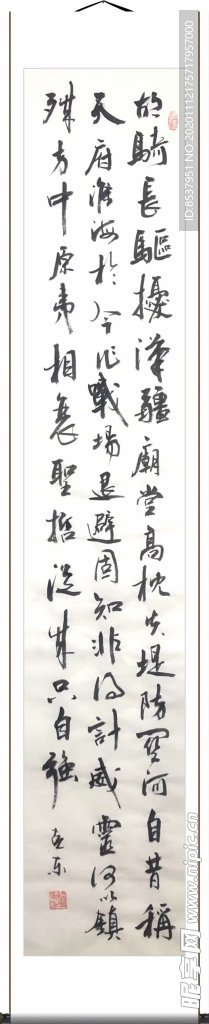 胡騎長驅擾漢疆廟堂高枕失堤防關河自昔稱
天府淮海於今作戰場退避固知非得計威靈何以鎮
殊方中原夷相衰聖哲從来只自強
ID:8537951 NO:20201112175717957000
昵享网 www.nipic.cn